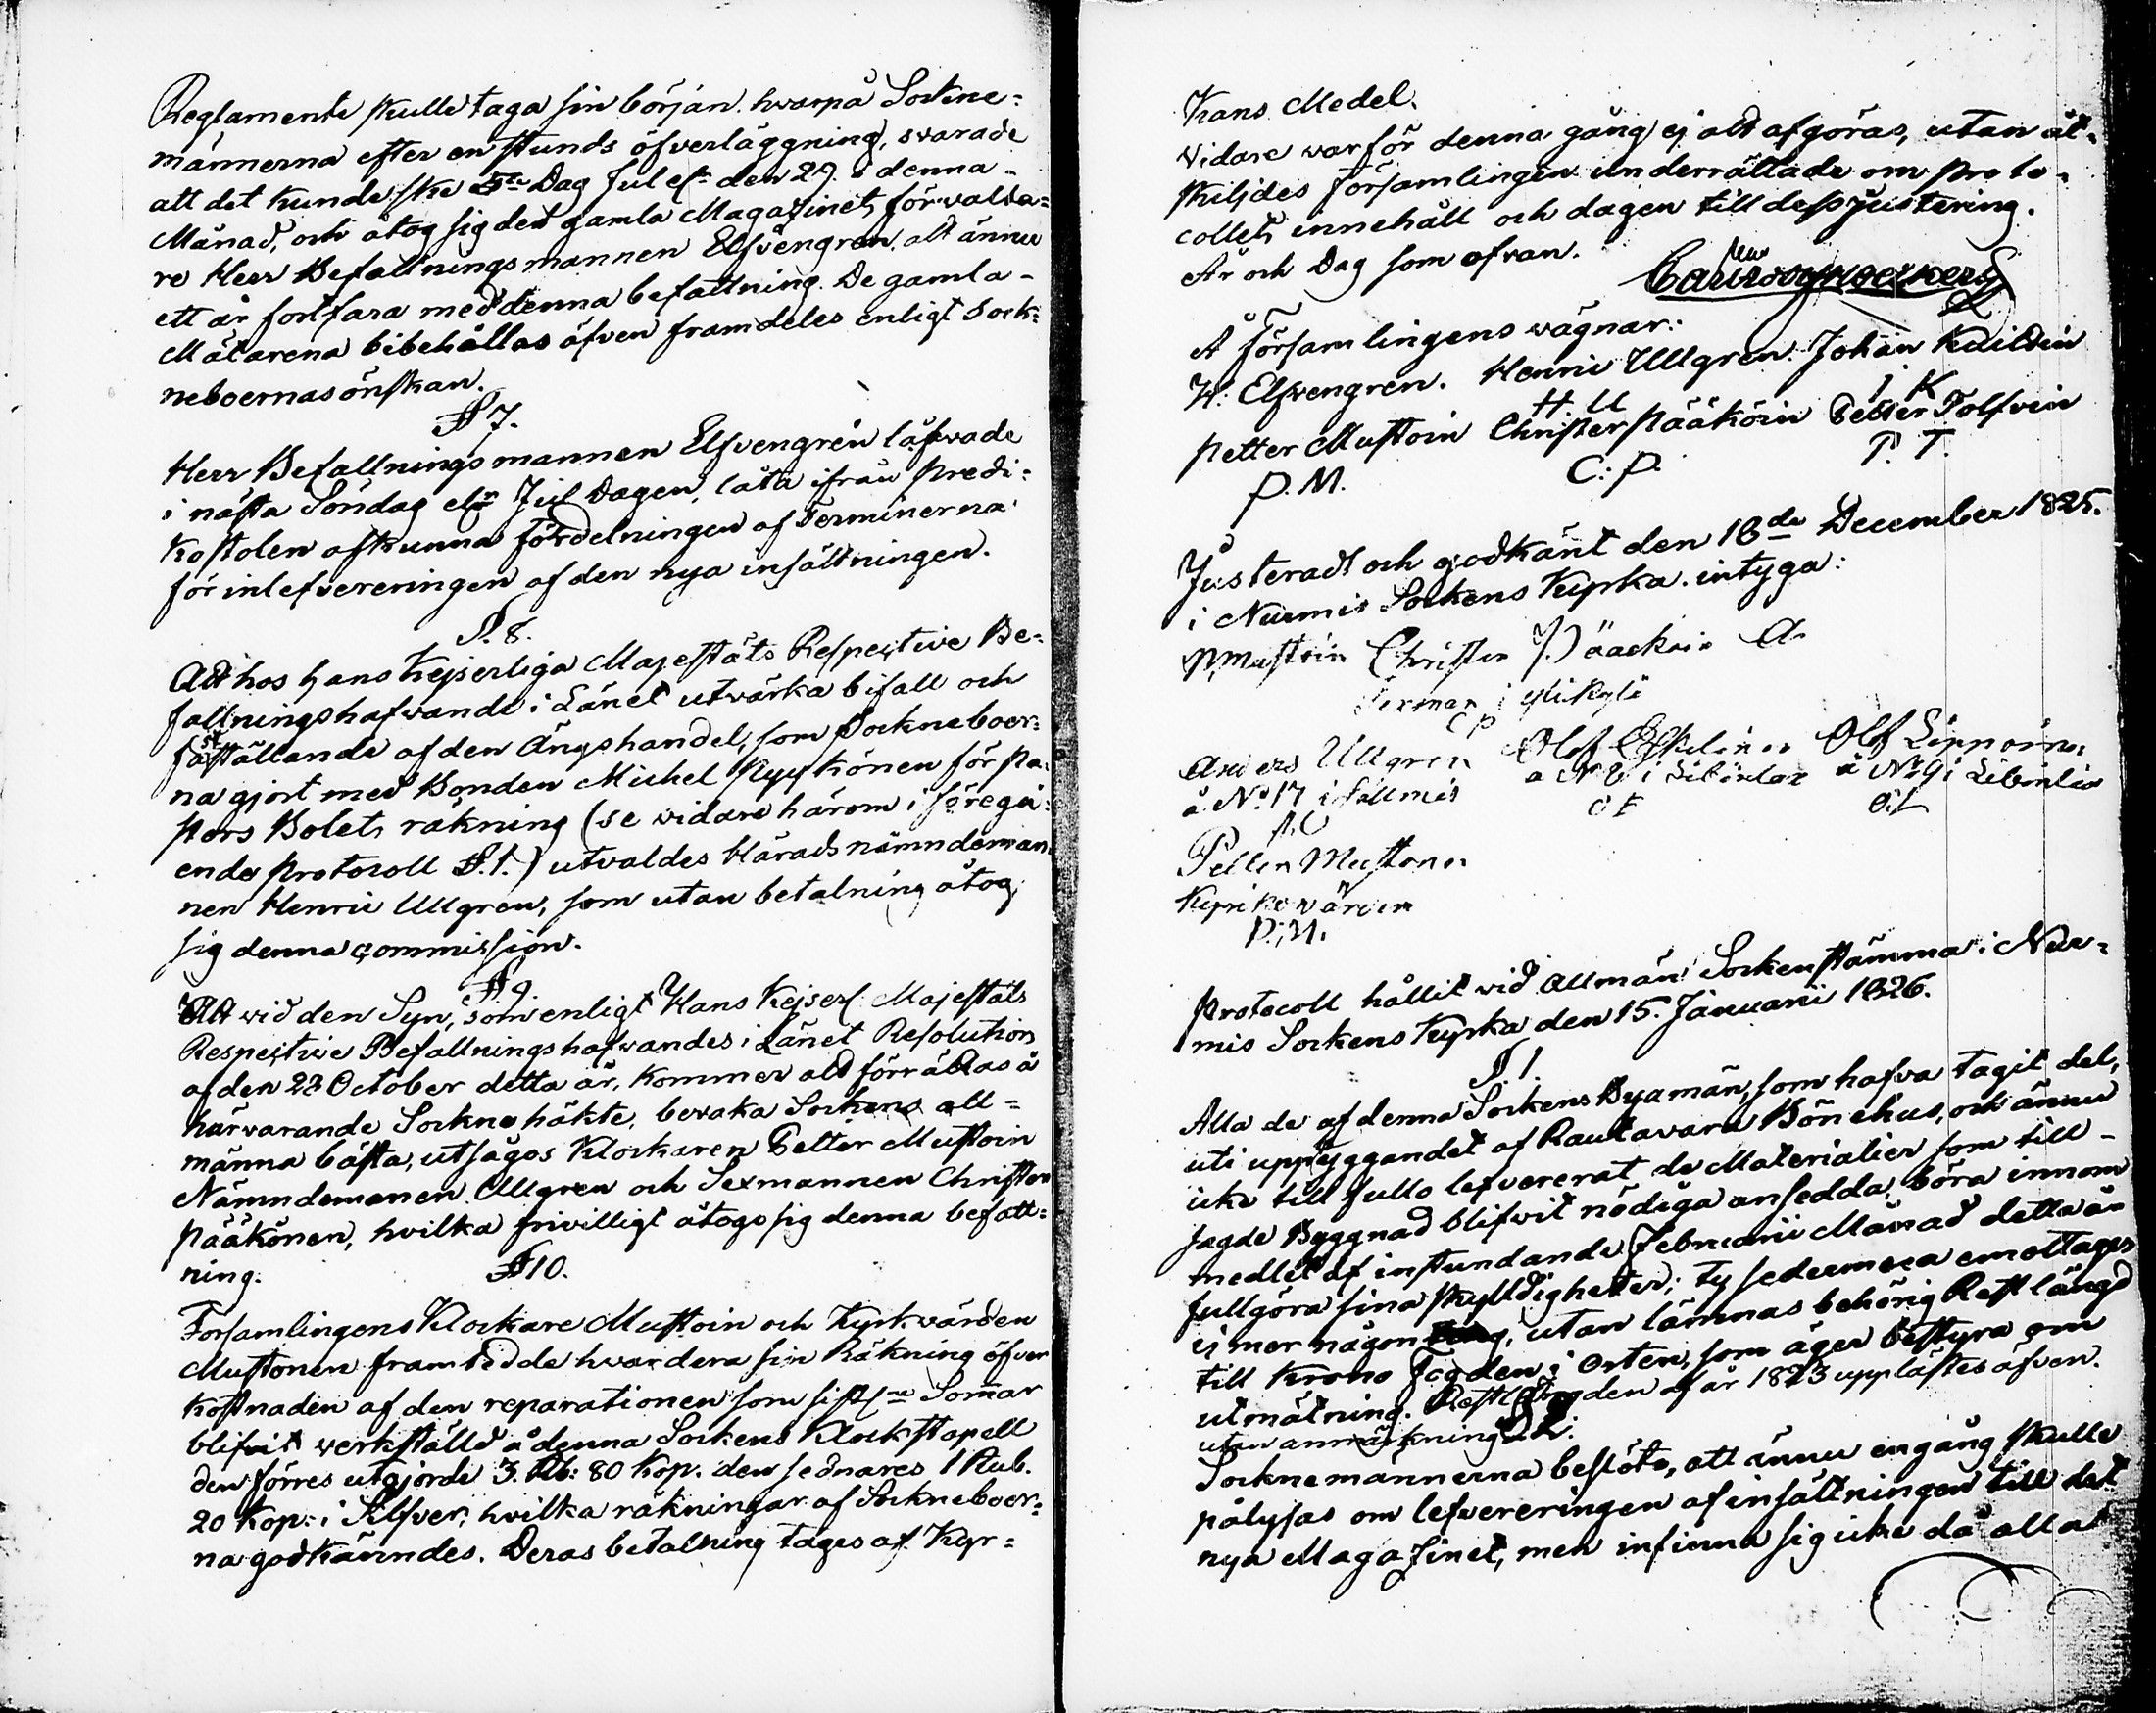 Reglamente skulle taga sin början. hvarpå Sockne=
männerna efter en stunds öfverläggning, svarade
att det kunde ske 5te Dag Jul el:r den 29. i denna
Månad, och åtog sig det gamla Magazinets förvalta=
re Herr Befallningsmannen Elfvengren, att ännu
ett år fortfara med denna befattning. De gamla
Mätarena bibehållas äfven framdeles enligt Sock=
neboernas önskan.
§ 7.
Herr Befallningsmannen Elfvengren låfvade
i nästa Söndag el:r Jul Dagen, låta ifrån Predi=
kostolen afkunna fördelningen af Terminerna
för inlefvereringen af den nya insättningen.
§. 8.
Att hos Hans Kejserliga Majestäts Respective Be=
fallningshafvande i Länet utvärka bifall och
faststställande af den Ängshandel, som Sockneboer=
na gjort med Bonden Michel Ryynkönen för Pa=
stors Bolets räkning (se vidare härom i föregå=
ende Protocoll §. 1.) utvaldes Häradsnämndeman=
nen Henric Ullgren, som utan betalning åtog
sig denna commission.
§ 9.
Att vid den Syn, som enligt Hans Kejserl: Majestäts
Respective Befallningshafvandes i Länet Resolution
af den 23 October detta år, kommer att förrättas å
härvarande Sockne häkte, bevaka Sockens all=
männa bästa, utsågos Klockaren Petter Mustoin
Nämndemannen Ullgren och Sexmannen Christer
Pääkönen, hvilka frivilligt åtogo sig denna befatt=
ning.
§ 10.
Församlingens Klockare Mustoin och Kyrkvärden
Mustonen framtedde hvardera sin Räkning öfver
kostnaden af den reparationen som sistl:ne Sommar
blifvit verkställd å denna Sockens Klockstapell
den förres utgjorde 3. Rb: 80 Kop. den sednares 1 Rub.
20 Kop: i Silfver, hvilka räkningar af SocknebOer=
na godkänndes. Deras betalning tages af Kyr=
kans Medel.
Vidare var för denna gång ej att afgöras, utan åt=
skiljdes församlingen underrättade om Proto=
collets innehåll och dagen till dess justering.
År och Dag som ofvan.
Å Församlingens vägnar:
H: Elfvengren. Henric Ullgren. Johan Kuildin
H U
J K
Petter Mustoin Christer Pääköin Petter Tolfvin
P. M.
C: P.
P. T.
Justeradt och godkänt den 18de December 1825.
i Nurmis Sockens Kyrka. intyga:
P, Mustoin Christer Pääkoin
Sexman i ylikylä
C P
Anders Ullgren Olof Eskelinen Olof Lipponen
å No 17 i Sållmis å No 8 i Libinlax å No 9 i Libinlax
A. U
O E
O: L
Petter Mustonen
Kyrkovärden
P: M.
Protocoll hållit vid Allmän Sockenstämma i Nur=
mis Sockens Kyrka den 15. Januarii 1826.
§. 1.
Alla de af denna Sockens Byamän, som hafva tagit del,
uti uppbyggandet af Rautavara Bönehus, och ännu
icke till fullo lefvererat de Materialier som till
sagde Byggnad blifvit nödiga ansedda, böra innom
medlet af instundande Februarii Månad detta år
fullgöra sina skylldigheter; ty sedermera emottages
ej mer någon, utan lämnas behörig Restlängd
till Krono Fogden i Orten, som äger bestyra om
utmätning. Restlängden af år 1823 upplästes äfven
utan anmärkning.
Socknemännerna beslöto, att ännu en gång skulle
pålysas om lefvereringen af insättningen till det
nya Magazinet, men infinna sig icke då alla